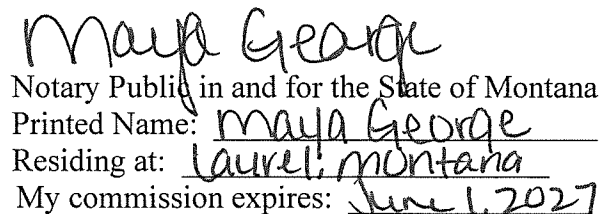 Maya George
Notary Public in and for the State of Montana
Printed Name: Maya George
Residing at: Laurel, Montana
My commission expires: June 1, 2027